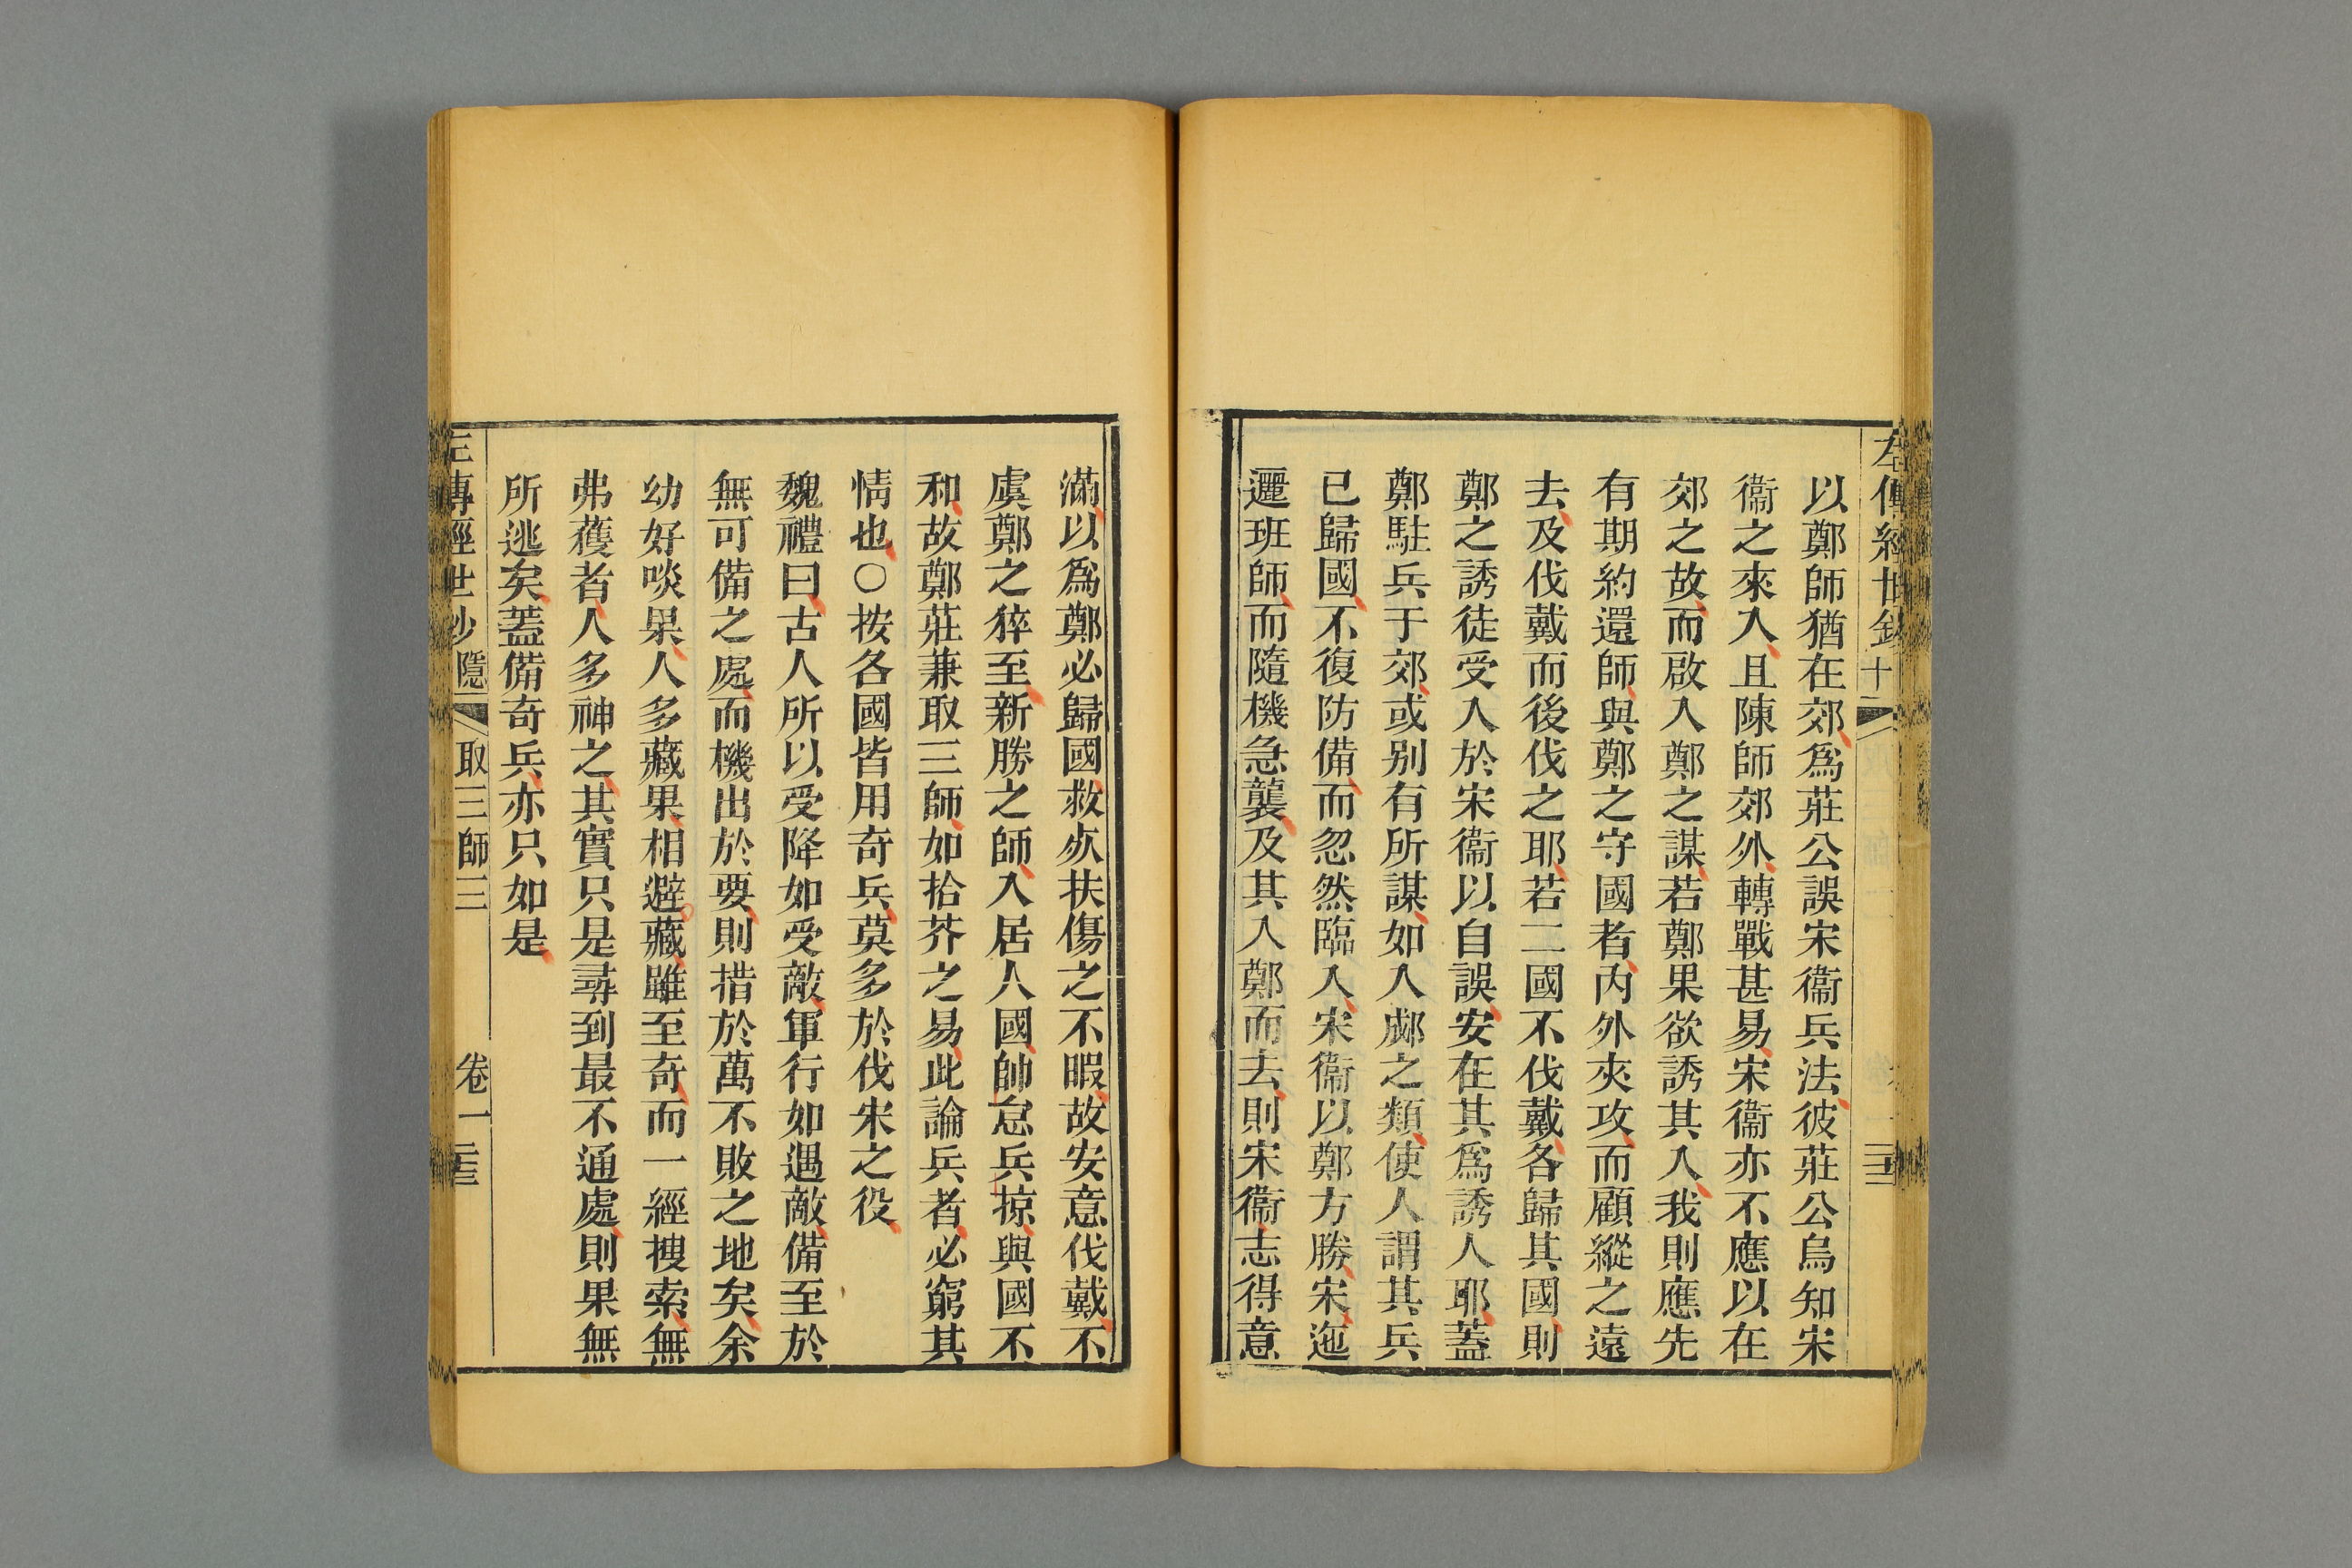 左傳經世鈔
十
以鄭師猶在郊爲莊公誤宋衞兵法彼莊公烏知宋
衞之來入且陳師郊外轉戰甚易宋衞亦不應以在
郊之故而啟入鄭之謀若鄭果欲誘其入我則應先
有期約還師與鄭之守國者內外夾攻而顧縱之遠
去及伐戴而後伐之耶若二國不伐戴各歸其國則
鄭之誘徒受入於宋衞以自誤安在其爲誘人耶蓋
鄭駐兵于郊或别有所謀如入郕之類使人謂其兵
已歸國不復防備而忽然臨入宋衞以鄭方勝宋迤
邐班師而隨機急襲及其入鄭而去則宋衞志得意
滿以爲鄭必歸國救死扶傷之不暇故安意伐戴不
虞鄭之猝至新勝之師入居人國帥怠兵掠與國不
和故鄭莊兼取三師如拾芥之易此論兵者必窮其
情也○按各國皆用奇兵莫多於伐宋之役
魏禮曰古人所以受降如受敵軍行如遇敵備至於
無可備之處而機出於要則措於萬不敗之地矣余
幼好啖果人多藏果相避藏雖至奇而一經搜索無
弗獲者人多神之其實只是尋到最不通處則果無
所逃矣蓋備奇兵亦只如是
左傳經世鈔 隱 取三師三 卷一